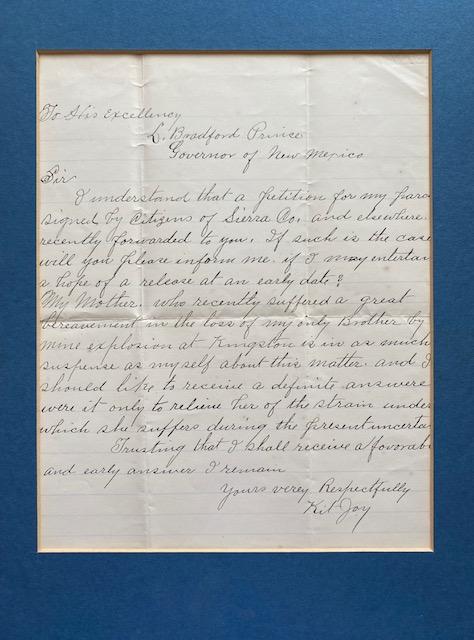 To His Excellency
L. Bradford Prince
Governor of New Mexico
Sir
I understand that a petition for my paro
signed by Citizens of Sierra Co. and elsewhere.
recently forwarded to you. If such is the case
will you please inform me. if I may entertain
a hope of a release at an early date?
My Mother. who recently suffered a great
bereavement in the loss of my only Brother by
mine explosion at Kingston is in as much
suspense as myself about this matter. and I
should like to receive a definite answere
were it only to relieve her of the strain under
which she suffers during the present uncertai
Trusting that I shall receive a favorab
and early answer I remain
Yours verey Respectfully
Kit Joy